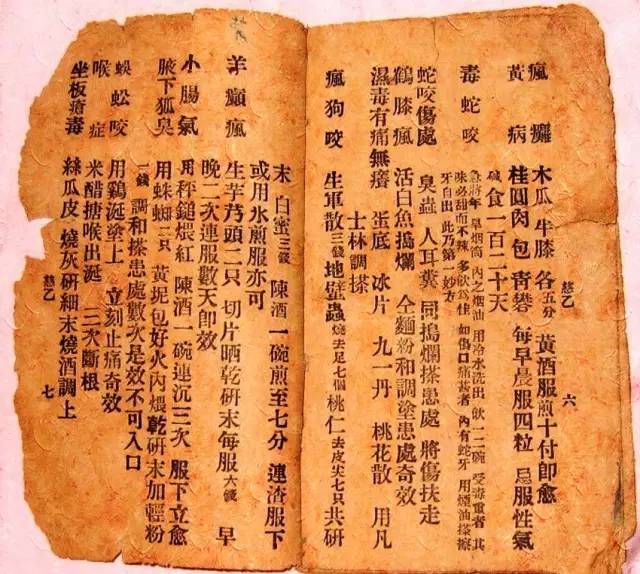 慈乙 六
瘋癱 木瓜 牛膝 各五分 黃酒服煎十付卽愈
黃病 桂圓肉包青礬 每早晨服四粒 忌服性氣
鹹食一百二十天
毒蛇咬 急將年旱烟筒內之烟油 用冷水洗出飲一二碗 受毒重者其
味必甜而不辣多飲爲佳 如傷口痛甚者 內有蛇牙 用煙油搽擦
牙自出此乃第一妙方
蛇咬傷處 臭蟲 人耳糞 同搗爛搽患處 將傷扶走
鶴膝瘋 活白魚搗爛 仝麵粉和調塗患處奇效
濕毒有痛無癢 蛋底 冰片 九一丹 桃花散 用凡
士林調搽
瘋狗咬 生軍散三錢 地鱉蟲燒去足七個 桃仁去皮尖七只共研
末 白蜜三錢 陳酒一碗煎至七分 連渣服下
或用水煎服亦可
羊癲瘋 生芋艿頭二只 切片晒乾研末每服六錢 早
晚二次連服數天卽效
小腸氣 用秤鎚煨紅 陳酒一碗連沉三次 服下立愈
腋下狐臭 用蛛蜘三只 黃坭包好火內煨乾研末加輕粉
一錢 調和搽患處數次是效不可入口
蜈蚣咬 用鷄涎塗上 立刻止痛奇效
喉症 米醋搪喉出涎 二次斷根
坐板瘡毒 絲瓜皮 燒灰研細末燒酒調上
慈乙 七